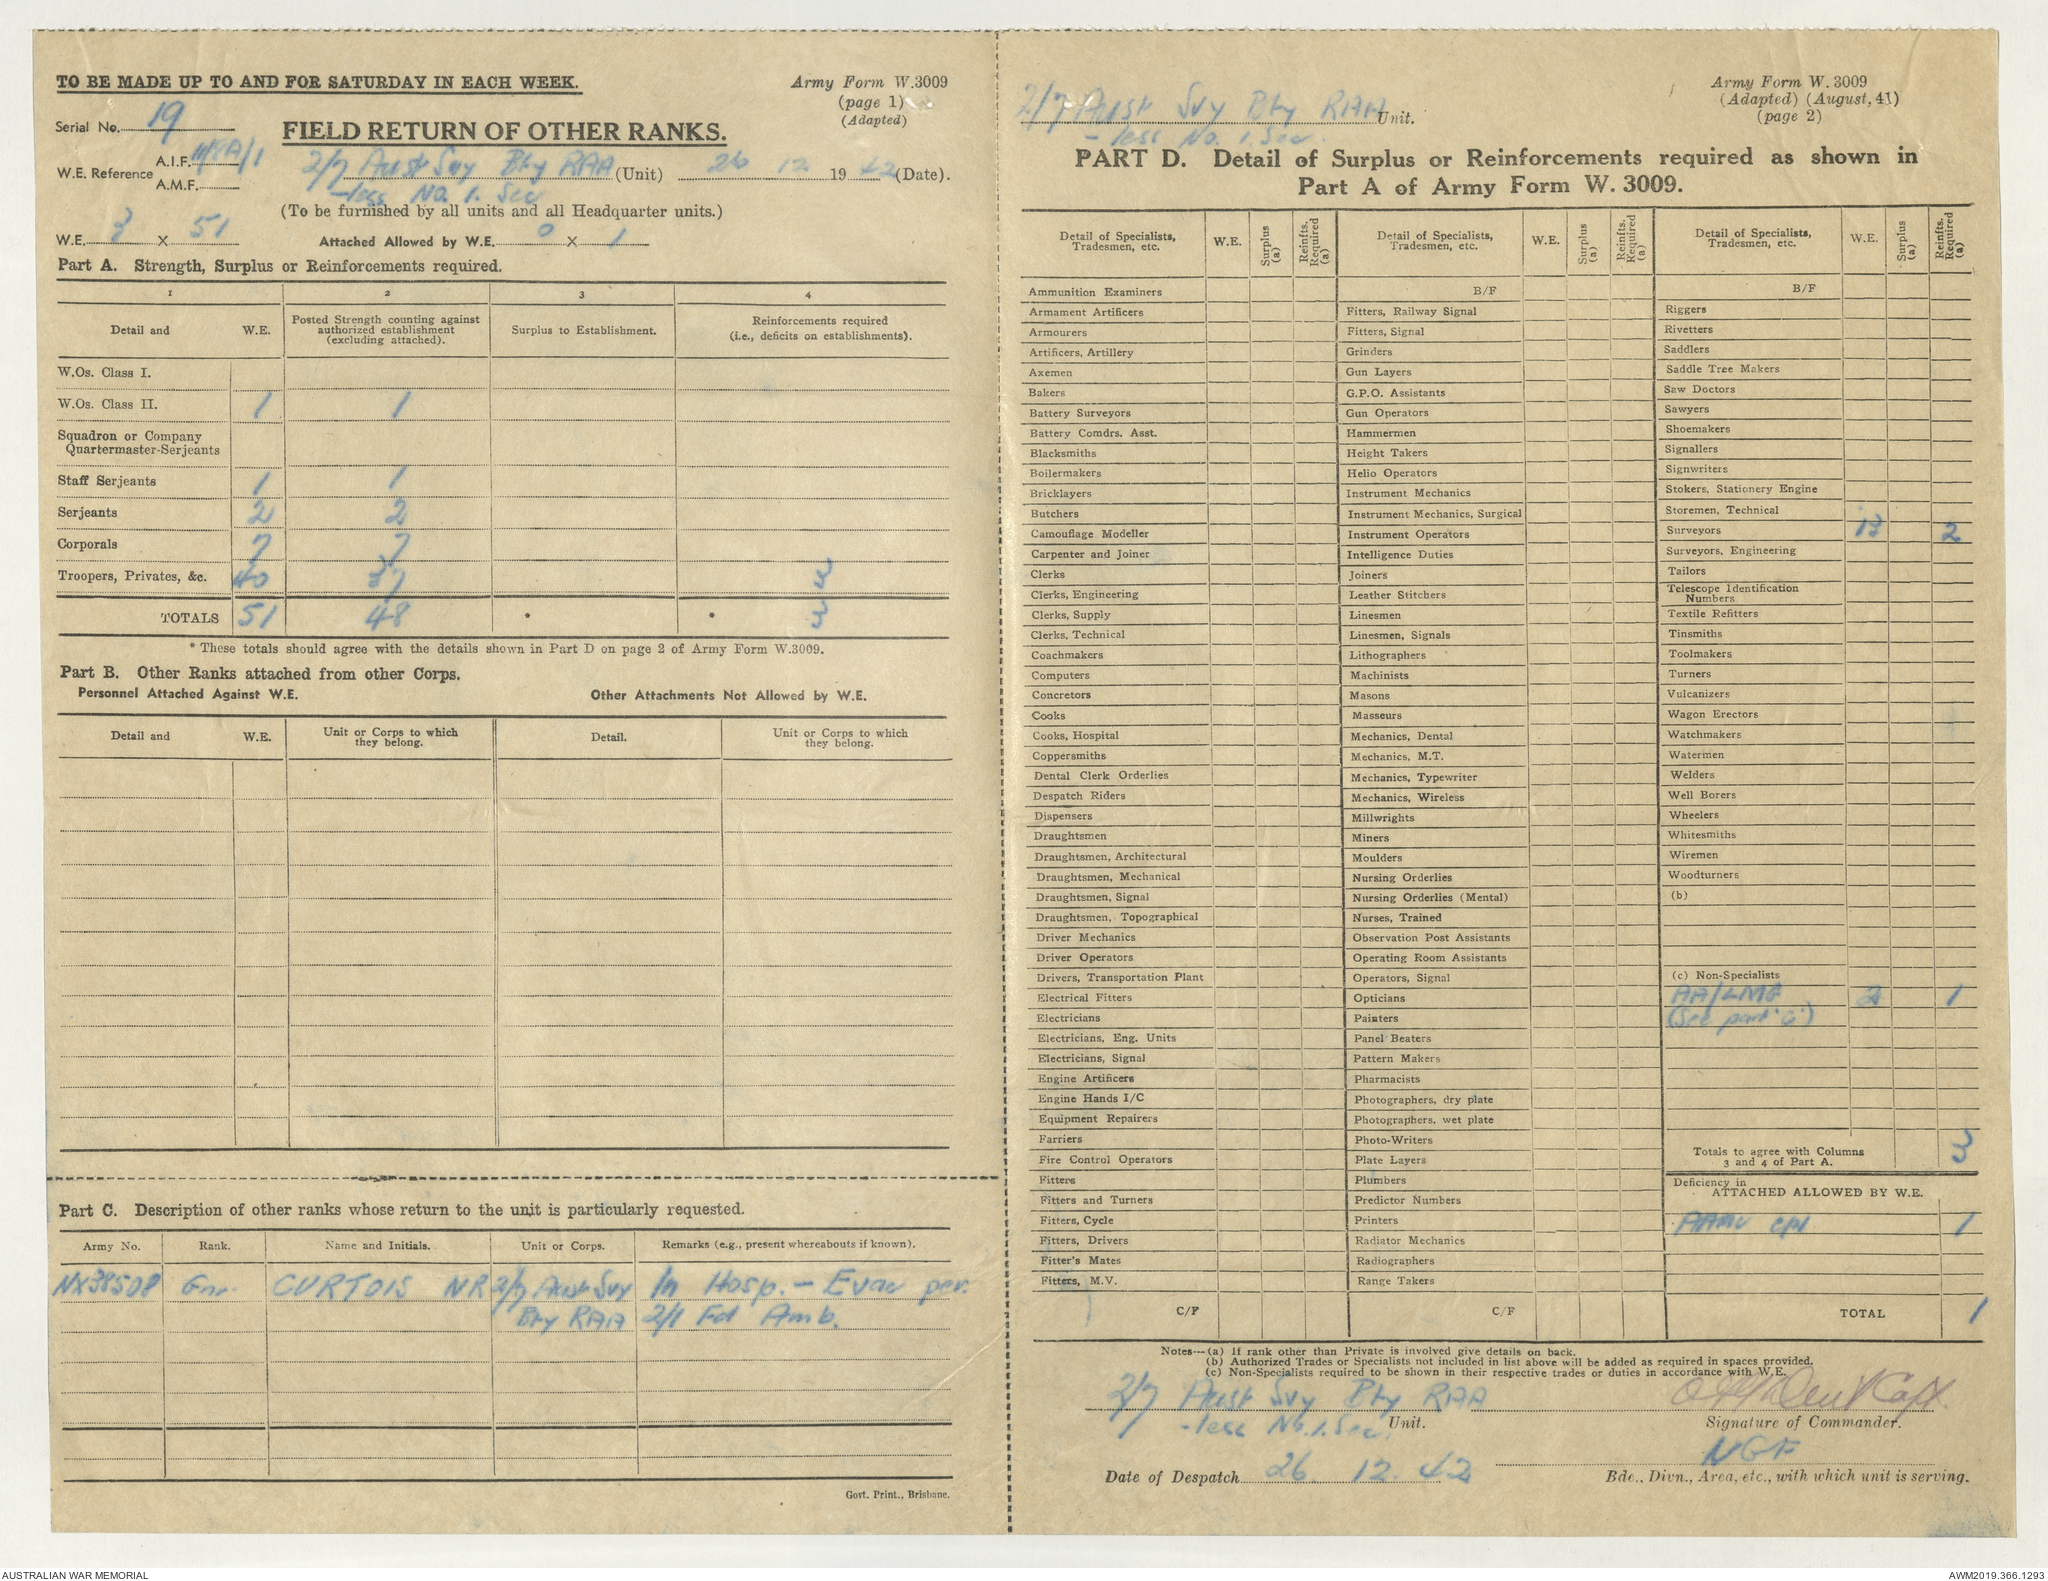 TO BE MADE UP TO AND FOR SATURDAY IN EACH WEEK.
Army Form W.3009
(page 1)
(Adapted)
Serial No. 19
FIELD RETURN OF OTHER RANKS.
W.E. Reference A.I.F.
A.M.F.
2/7 Aust Svy Bty RAA (Unit) 26 12 1942 (Date).
-less No. 1. Sec
(To be furnished by all units and all Headquarter units.)
W.E. 3 X 51 Attached Allowed by W.E. 0 X 1
Part A. Strength, Surplus or Reinforcements required.
1 2 3 4
Detail and W.E. Posted Strength counting against authorized establishment (excluding attached). Surplus to Establishment. Reinforcements required (i.e., deficits on establishments).
W.Os. Class I.
W.Os. Class II. 1 1
Squadron or Company
Quartermaster-Serjeants
Staff Serjeants 1 1
Serjeants 2 2
Corporals 7 7
Troopers, Privates, &c. 40 37 3
TOTALS 51 48 * * 3
* These totals should agree with the details shown in Part D on page 2 of Army Form W.3009.
Part B. Other Ranks attached from other Corps.
Personnel Attached Against W.E. Other Attachments Not Allowed by W.E.
Detail and W.E. Unit or Corps to which they belong. Detail. Unit or Corps to which they belong.
Part C. Description of other ranks whose return to the unit is particularly requested.
Army No. Rank. Name and Initials. Unit or Corps. Remarks (e.g., present whereabouts if known).
NX38508 Gnr. CURTOIS NR 2/7 Aust Svy In Hosp. - Evac per.
Bty RAA 2/1 Fd Amb.
Govt. Print., Brisbane.
2/7 Aust Svy Bty RAA Unit.
-less No. 1. Sec.
Army Form W. 3009
(Adapted) (August, 41)
(page 2)
PART D. Detail of Surplus or Reinforcements required as shown in
Part A of Army Form W. 3009.
Detail of Specialists, Tradesmen, etc. W.E. Surplus (a) Reinfts. Required (a)
Ammunition Examiners
Armament Artificers
Armourers
Artificers, Artillery
Axemen
Bakers
Battery Surveyors
Battery Comdrs. Asst.
Blacksmiths
Boilermakers
Bricklayers
Butchers
Camouflage Modeller
Carpenter and Joiner
Clerks
Clerks, Engineering
Clerks, Supply
Clerks, Technical
Coachmakers
Computers
Concretors
Cooks
Cooks, Hospital
Coppersmiths
Dental Clerk Orderlies
Despatch Riders
Dispensers
Draughtsmen
Draughtsmen, Architectural
Draughtsmen, Mechanical
Draughtsmen, Signal
Draughtsmen, Topographical
Driver Mechanics
Driver Operators
Drivers, Transportation Plant
Electrical Fitters
Electricians
Electricians, Eng. Units
Electricians, Signal
Engine Artificers
Engine Hands I/C
Equipment Repairers
Farriers
Fire Control Operators
Fitters
Fitters and Turners
Fitters, Cycle
Fitters, Drivers
Fitter's Mates
Fitters, M.V.
C/F
Detail of Specialists, Tradesmen, etc. W.E. Surplus (a) Reinfts. Required (a)
B/F
Fitters, Railway Signal
Fitters, Signal
Grinders
Gun Layers
G.P.O. Assistants
Gun Operators
Hammermen
Height Takers
Helio Operators
Instrument Mechanics
Instrument Mechanics, Surgical
Instrument Operators
Intelligence Duties
Joiners
Leather Stitchers
Linesmen
Linesmen, Signals
Lithographers
Machinists
Masons
Masseurs
Mechanics, Dental
Mechanics, M.T.
Mechanics, Typewriter
Mechanics, Wireless
Millwrights
Miners
Moulders
Nursing Orderlies
Nursing Orderlies (Mental)
Nurses, Trained
Observation Post Assistants
Operating Room Assistants
Operators, Signal
Opticians
Painters
Panel Beaters
Pattern Makers
Pharmacists
Photographers, dry plate
Photographers, wet plate
Photo-Writers
Plate Layers
Plumbers
Predictor Numbers
Printers
Radiator Mechanics
Radiographers
Range Takers
C/F
Detail of Specialists, Tradesmen, etc. W.E. Surplus (a) Reinfts. Required (a)
B/F
Riggers
Rivetters
Saddlers
Saddle Tree Makers
Saw Doctors
Sawyers
Shoemakers
Signallers
Signwriters
Stokers, Stationery Engine
Storemen, Technical
Surveyors 13 2
Surveyors, Engineering
Tailors
Telescope Identification
Numbers
Textile Refitters
Tinsmiths
Toolmakers
Turners
Vulcanizers
Wagon Erectors
Watchmakers
Watermen
Welders
Well Borers
Wheelers
Whitesmiths
Wiremen
Woodturners
(b)
(c) Non-Specialists
AA/LMG 2 1
(See part 'C')
Totals to agree with Columns
3 and 4 of Part A. 3
Deficiency in
ATTACHED ALLOWED BY W.E.
AAMC Cpl 1
TOTAL 1
Notes—(a) If rank other than Private is involved give details on back.
(b) Authorized Trades or Specialists not included in list above will be added as required in spaces provided.
(c) Non-Specialists required to be shown in their respective trades or duties in accordance with W.E.
2/7 Aust Svy Bty RAA Unit.
-less No. 1. Sec.
Capt.
Signature of Commander.
Date of Despatch 26. 12. 42
NGF
Bde., Divn., Area, etc., with which unit is serving.
AUSTRALIAN WAR MEMORIAL
AWM2019.366.1293